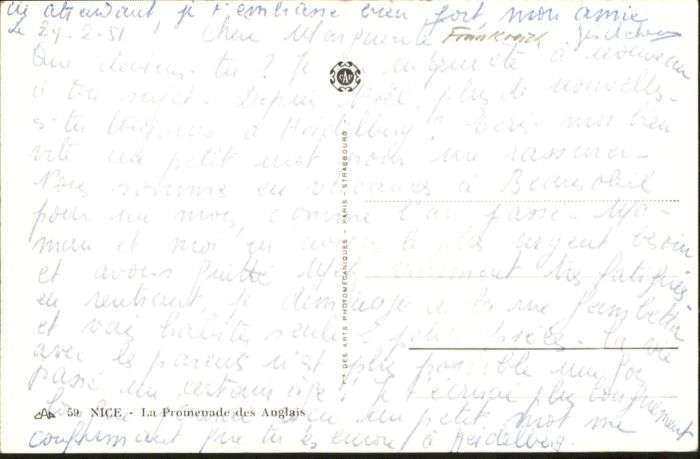 En attendant, je t'embrasse bien fort, mon amie
Le 24-2-51 Chère Marguerite Frankreich
Que deviens-tu? Je m'inquiète à nouveau
à ton sujet. Depuis Noël, plus de nouvelles.
Es-tu toujours à Heidelberg? Ecris moi bien
vite un petit mot pour me rassurer.
Nous sommes en vacances à Beausoleil
pour un mois, comme l'an passé. Ma-
man et moi en avions le plus urgent besoin
et avons quitté vraiment très fatiguées
en rentrant, je déménage rue Gambetta
et vais habiter seule 2 petites pièces. La vie
avec les parents n'est plus possible une fois
passé un certain âge! Je t'écrirai plus longuement
un petit mot me
confirmant que tu es encore à Heidelberg.
CAP
Sté DES ARTS PHOTOMÉCANIQUES - PARIS - STRASBOURG
59 NICE - La Promenade des Anglais